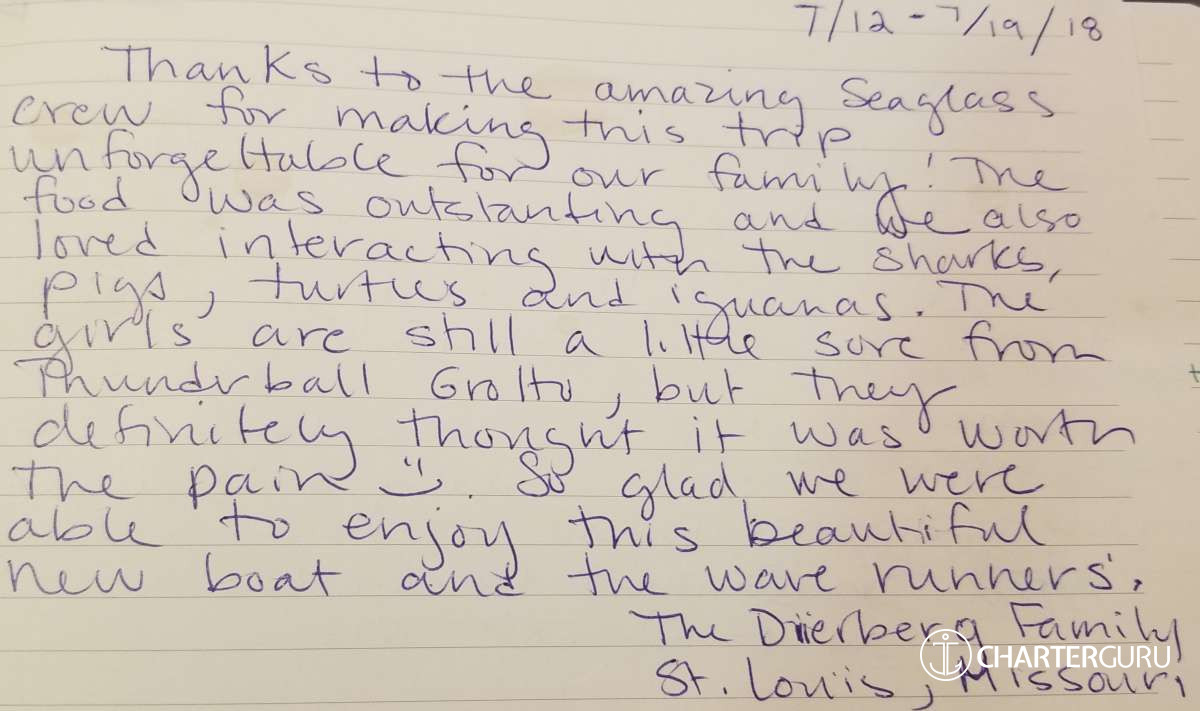 7/12 - 7/19/18
Thanks to the amazing Seaglass
crew for making this trip
unforgettable for our family! The
food was outstanting and We also
loved interacting with the sharks,
pigs, turtles and iguanas. The
girls are still a little sore from
Thunderball Grotto, but they
definitely thought it was worth
the pain :). So glad we were
able to enjoy this beautiful
new boat and the wave runners.
The Drierberg Family
St. Louis, Missouri
CHARTERGURU